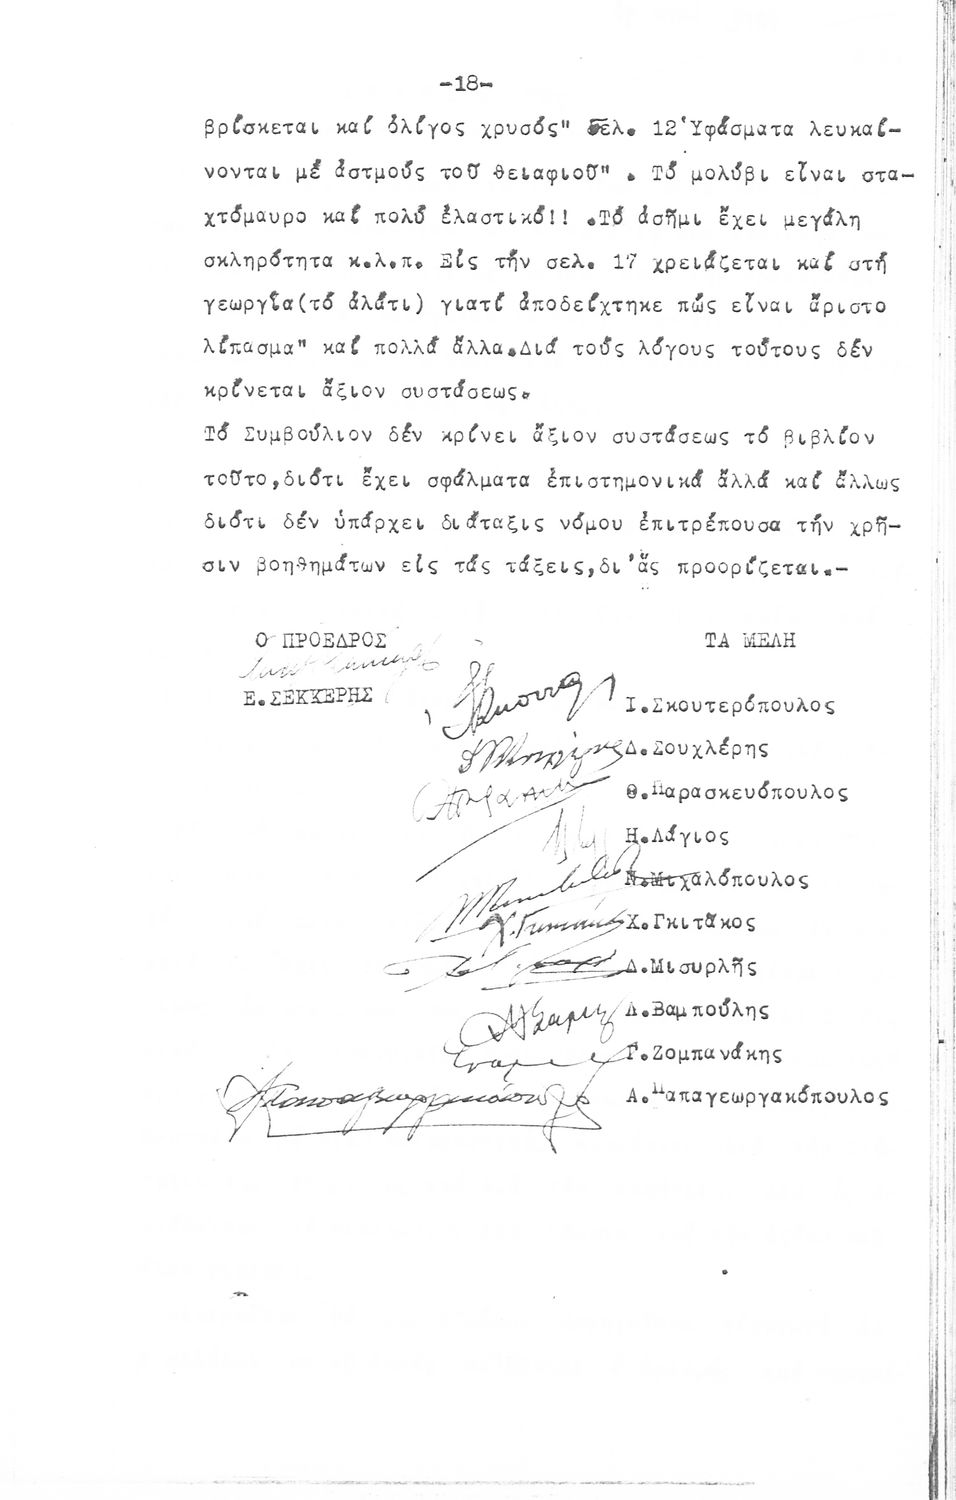 -18-
βρίσκεται καί ὀλίγος χρυσός" Σελ. 12 Ὑφάσματα λευκαί-
νονται μέ ἀστμούς τοῦ θειαφιοῦ" . Τό μολύβι εἶναι στα-
χτόμαυρο καί πολύ ἐλαστικό!! .Τό ἀσῆμι ἔχει μεγάλη
σκληρότητα κ.λ.π. Εἰς τήν σελ. 17 χρειάζεται καί στή
γεωργία(τό ἁλάτι) γιατί ἀποδείχτηκε πώς εἶναι ἄριστο
λίπασμα" καί πολλά ἄλλα.Διά τούς λόγους τούτους δέν
κρίνεται ἄξιον συστάσεως.
Τό Συμβούλιον δέν κρίνει ἄξιον συστάσεως τό βιβλίον
τοῦτο,διότι ἔχει σφάλματα ἐπιστημονικά ἀλλά καί ἄλλως
διότι δέν ὑπάρχει διάταξις νόμου ἐπιτρέπουσα τήν χρῆ-
σιν βοηθημάτων εἰς τάς τάξεις,δι'ἅς προορίζεται.-
Ο ΠΡΟΕΔΡΟΣ ΤΑ ΜΕΛΗ
Ε.ΣΕΚΚΕΡΗΣ
Ι.Σκουτερόπουλος
Δ.Σουχλέρης
Θ.Παρασκευόπουλος
Η.Λάγιος
Ν.Μιχαλόπουλος
Χ.Γκιτάκος
Δ.Μισυρλῆς
Δ.Βαμπούλης
Γ.Ζομπανάκης
Α.Παπαγεωργακόπουλος